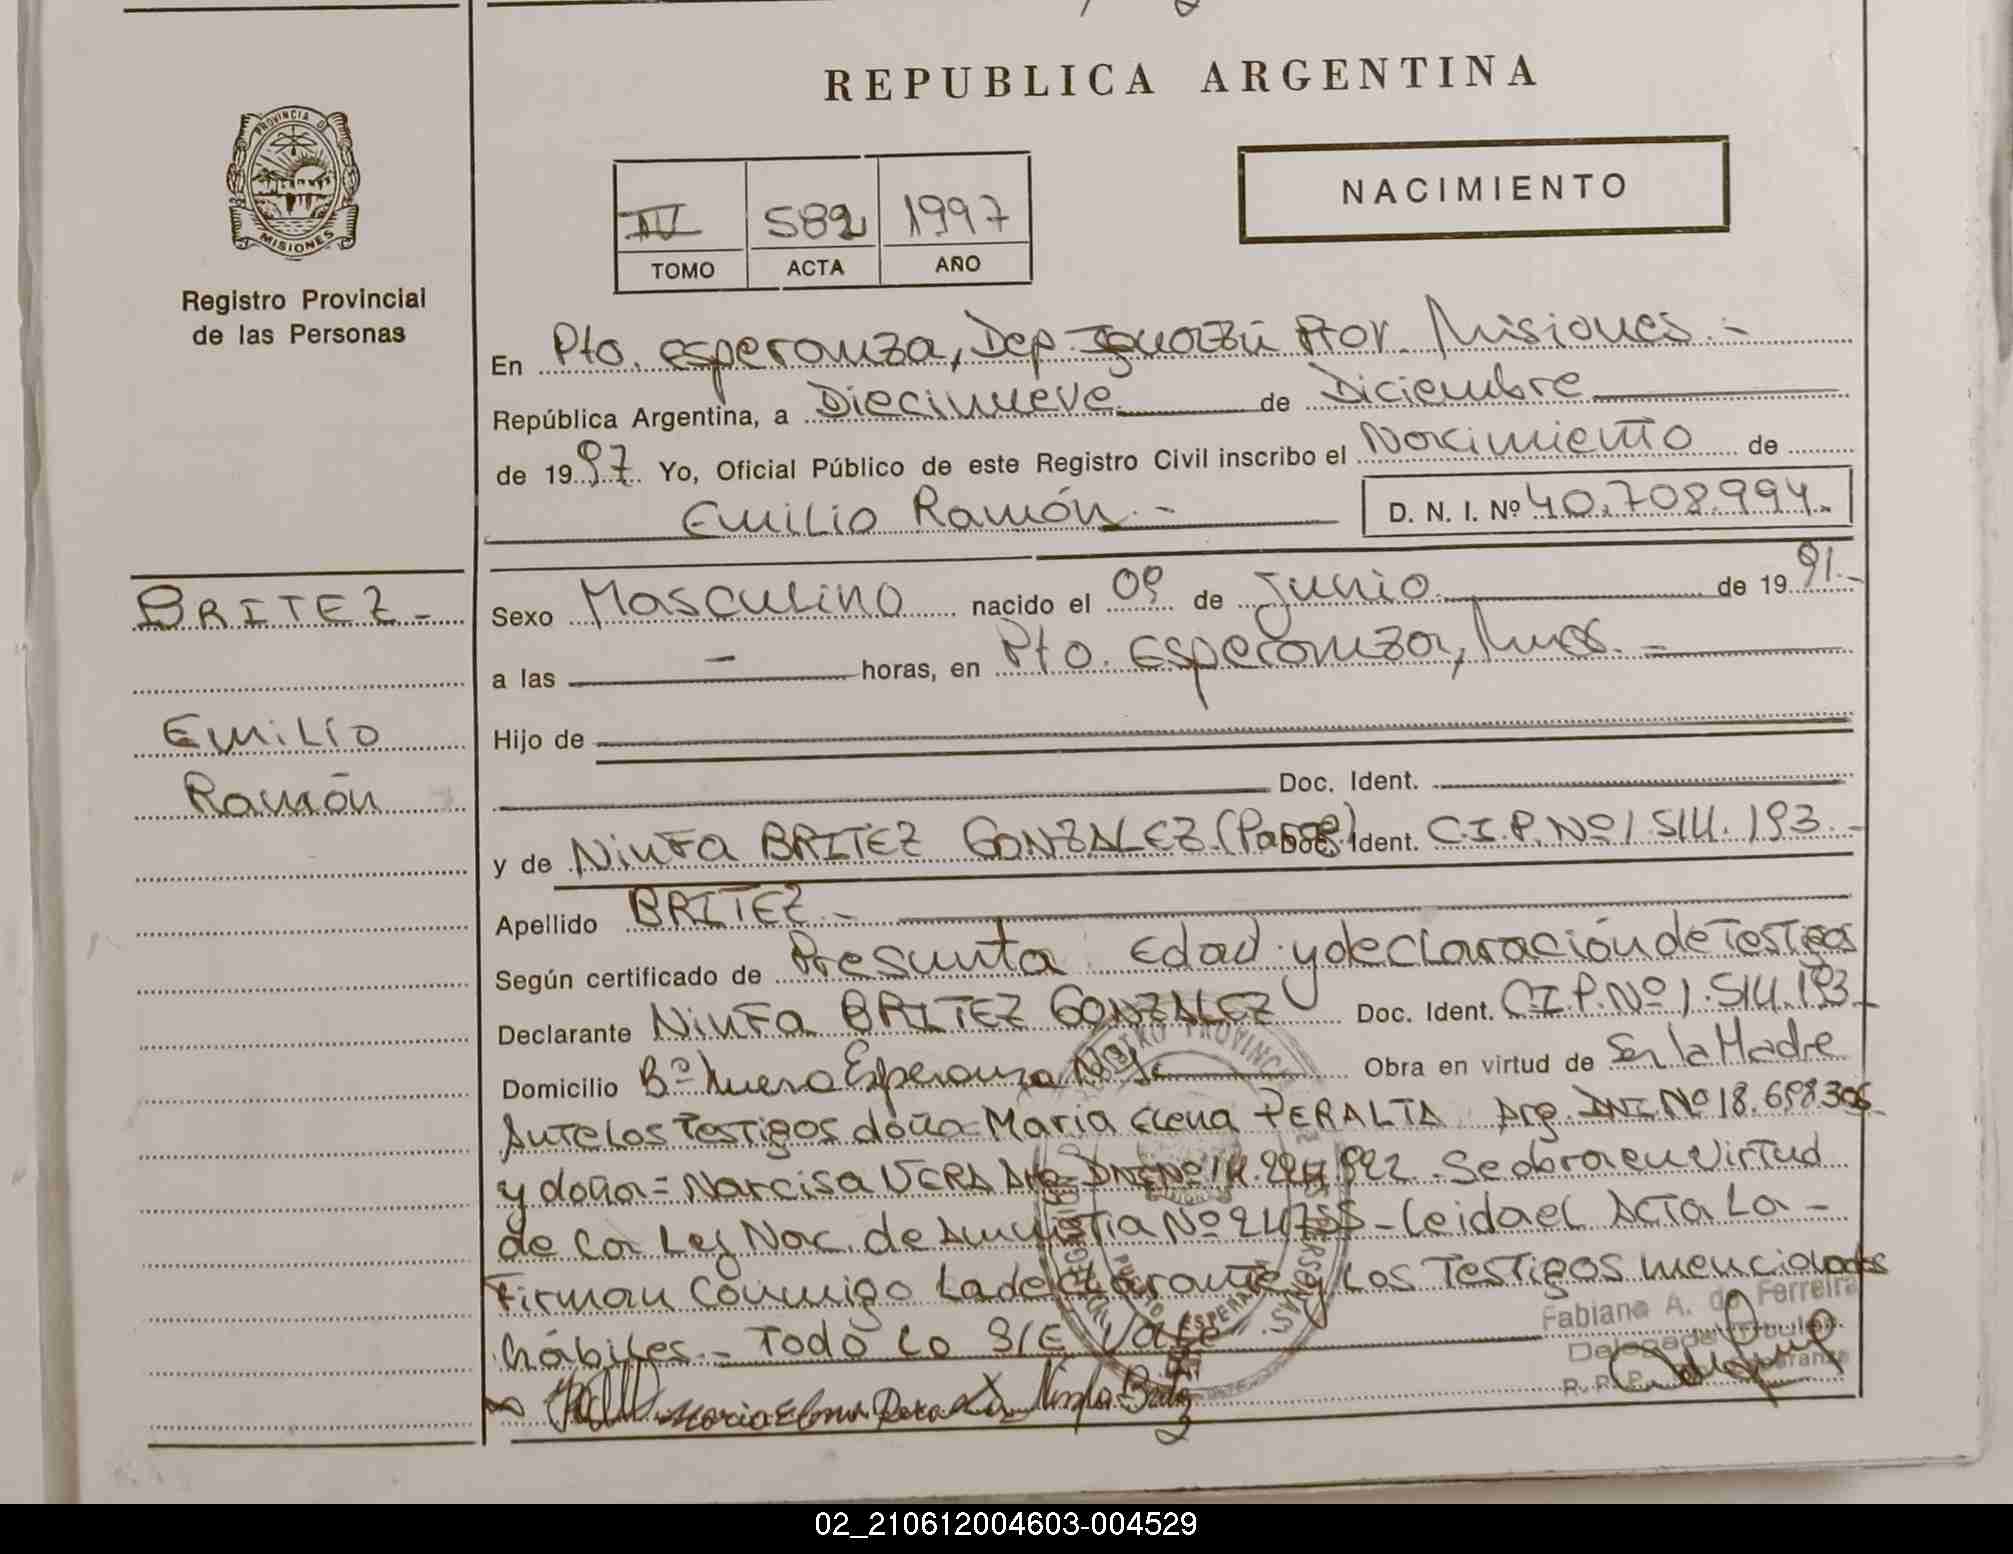 REPUBLICA ARGENTINA
PROVINCIA DE
MISIONES
Registro Provincial
de las Personas
NACIMIENTO
IV 582 1997
TOMO ACTA AÑO
En Pto. Esperanza, Dep. Iguazú Pror. Misiones.-
República Argentina, a Diecinueve de Diciembre
de 1997 Yo, Oficial Público de este Registro Civil inscribo el Nacimiento de
Emilio Ramón.- D. N. I. Nº 40.708.994.
BRITEZ.-
Emilio
Ramón
Sexo Masculino nacido el 09 de Junio de 1991.-
a las - horas, en Pto. Esperanza, Mnes.-
Hijo de
Doc. Ident.
y de Ninfa BRITEZ GONZALEZ (Parag) Doc. Ident. C.I.P.Nº 1.514.193.-
Apellido BRITEZ.-
Según certificado de Presunta Edad y declaración de Testigos
Declarante Ninfa BRITEZ GONZALEZ Doc. Ident. C.I.P.Nº 1.514.193-
Domicilio Bº Nueva Esperanza Obra en virtud de Ser la Madre
Ante los Testigos doña= Maria Elena PERALTA Arg. DNI.Nº 18.658.306
y doña= Narcisa VERA Arg. DNI Nº 14. Se obra en Virtud
de la Ley Nac. de Amnistia Nº 24755- Leida el Acta La-
Firman Conmigo La declarante y Los Testigos mencionados
hábiles.- Todo Lo S/E Vale
Fabiana A. de Ferreira
Delegada Titular
R. P. P. Esperanza
02_210612004603-004529